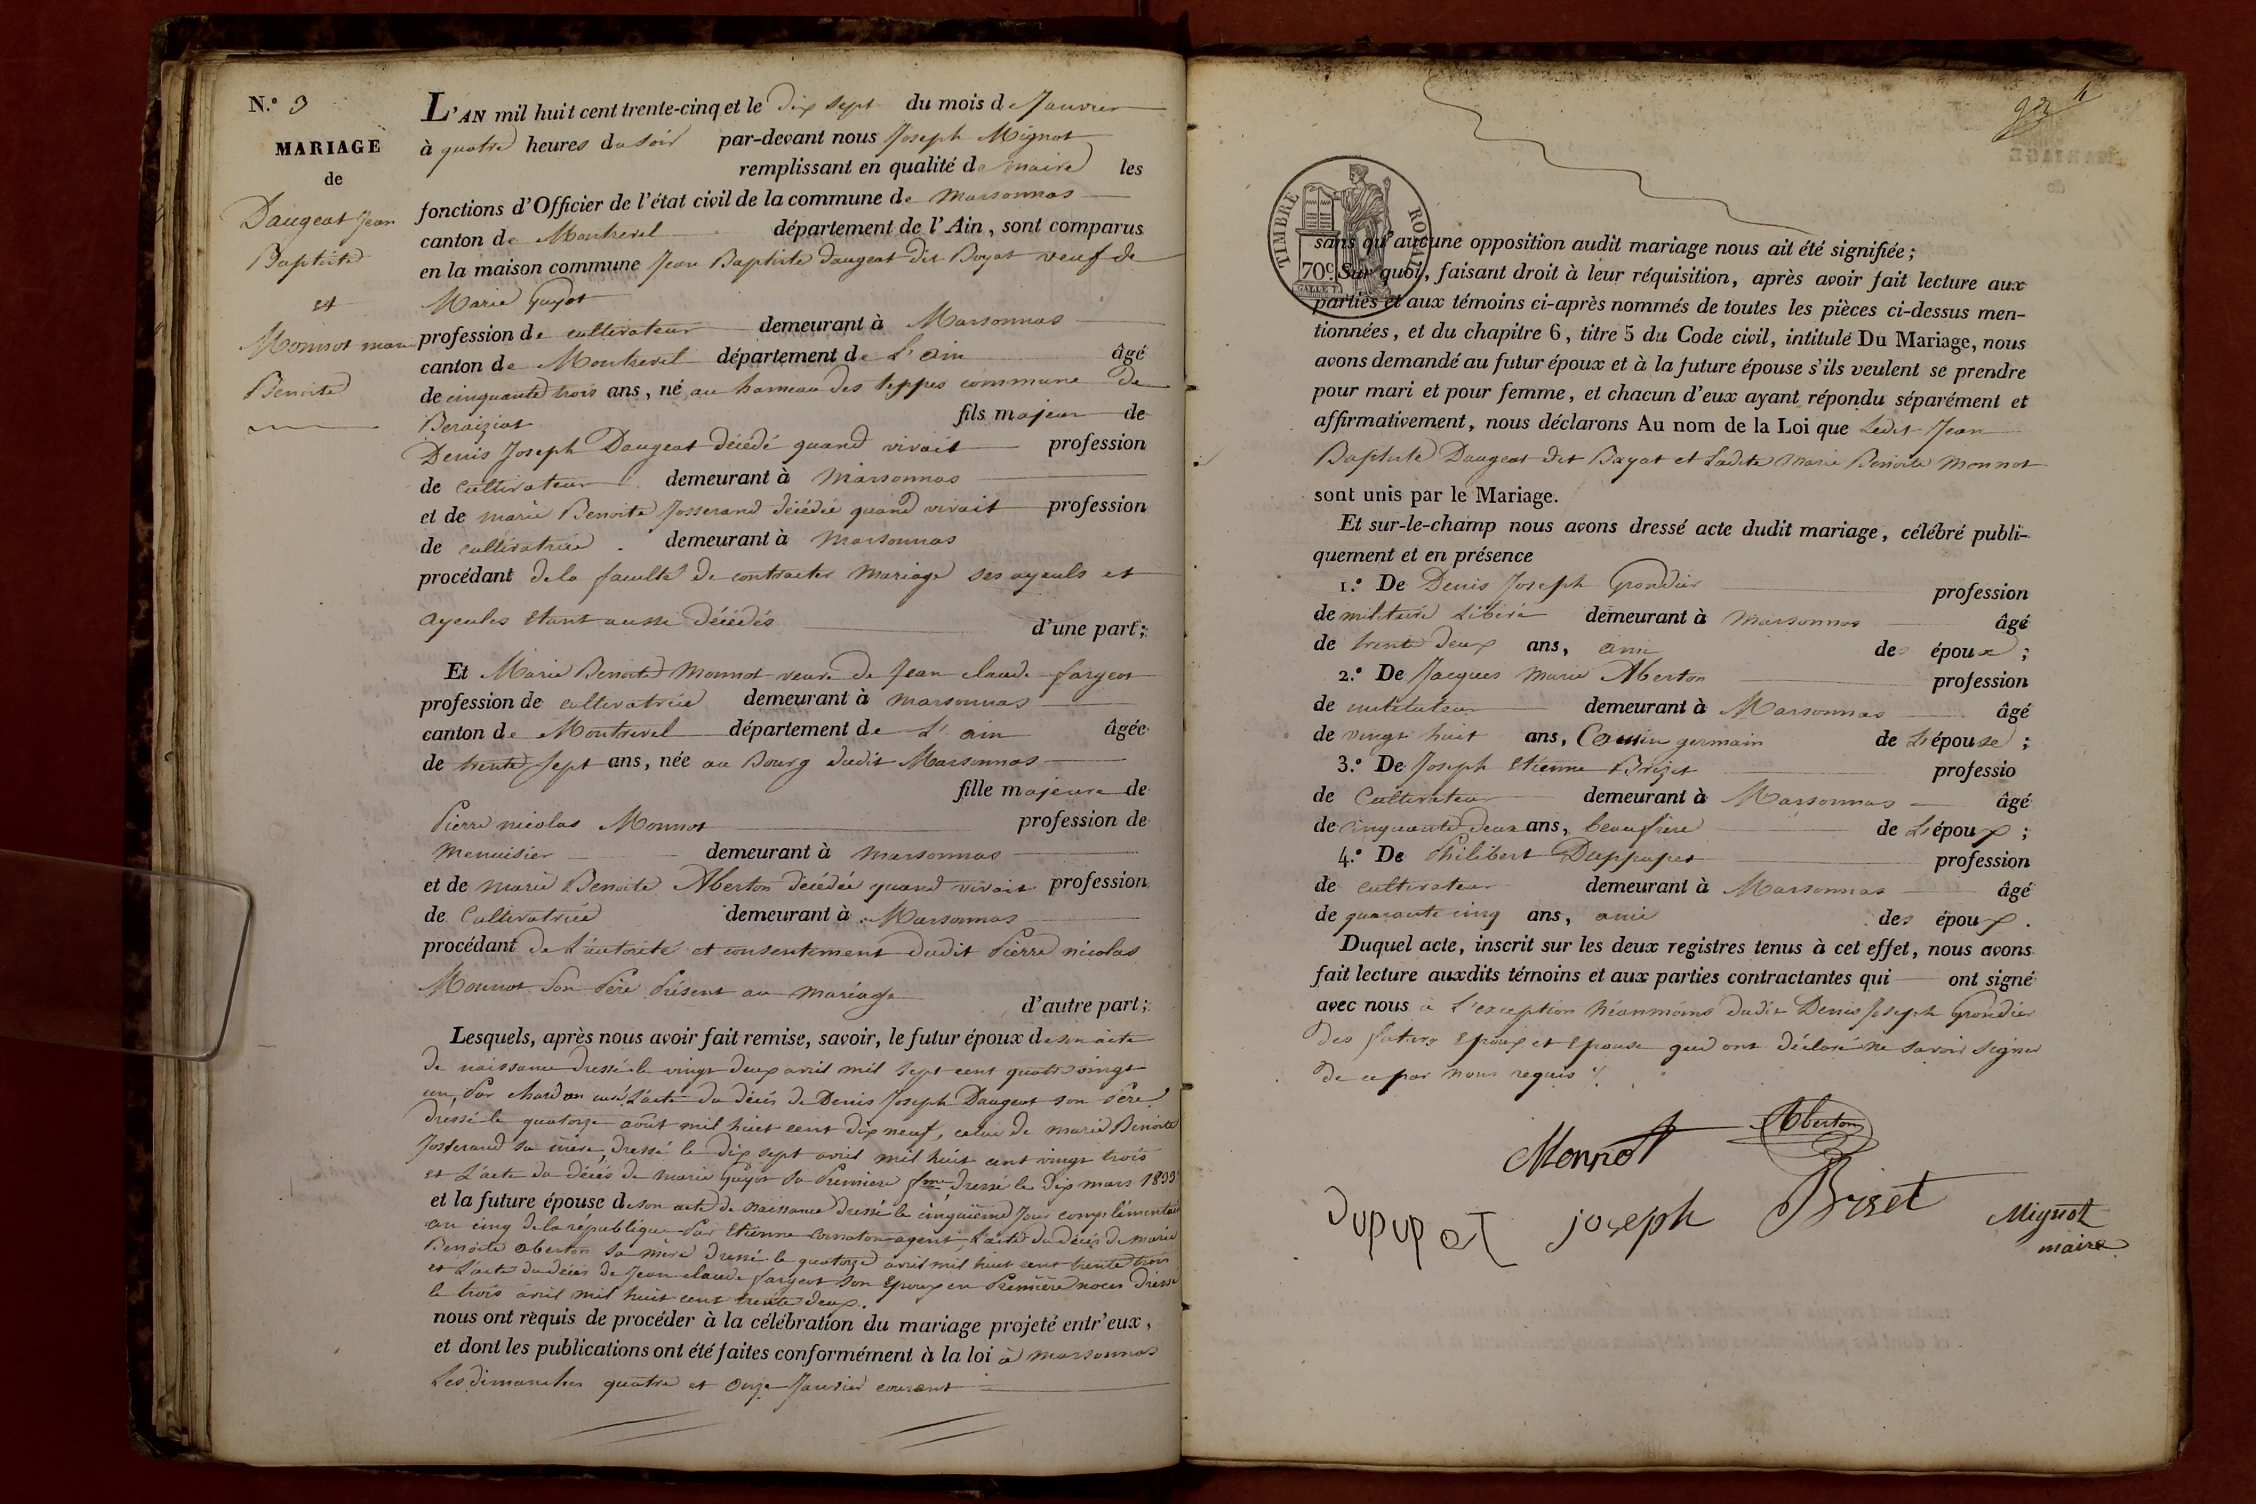 N.º 3
MARIAGE
de
Daugeat Jean
Baptiste
et
Monnot marie
Benoite
L'AN mil huit cent trente-cinq et le dix sept du mois de Janvier
à quatre heures du soir par-devant nous Joseph Mignot
remplissant en qualité de maire les
fonctions d'Officier de l'état civil de la commune de Marsonnas
canton de Montrevel département de l'Ain, sont comparus
en la maison commune Jean Baptiste Daugeat dit Boyat veuf de
Marie Guyot
profession de cultivateur demeurant à Marsonnas
canton de Montrevel département de L'ain âgé
de cinquante trois ans, né au hameau des teppes commune de
Beraiziat fils majeur de
Denis Joseph Daugeat décédé quand vivait profession
de cultivateur demeurant à Marsonnas
et de marie Benoite Josserand décédée quand vivait profession
de cultivatrice demeurant à Marsonnas
procédant de la faculté de contracter mariage ses ayeuls et
ayeules étant aussi décédés d'une part;
Et Marie Benoite Monnot veuve de Jean claude fargeot
profession de cultivatrice demeurant à marsonnas
canton de Montrevel département de L'ain âgée
de trente sept ans, née au Bourg dudit Marsonnas
fille majeure de
Pierre nicolas Monnot profession de
Menuisier demeurant à marsonnas
et de marie Benoite Aberton décédée quand vivait profession
de Cultivatrice demeurant à Marsonnas
procédant de L'autorité et consentement dudit Pierre nicolas
Monnot son Père Présent au mariage d'autre part;
Lesquels, après nous avoir fait remise, savoir, le futur époux de son acte
de naissance dressé le vingt deux avril mil sept cent quatre vingt
un, Par curé L'acte du décès de Denis Joseph Daugeat son Père
dressé le quatorze août mil huit cent dix neuf, celui de marie Benoite
Josserand sa mère, dressé le dix sept avril mil huit cent vingt trois
et L'acte du décès de marie Guyot sa Première fme dressé le dix mars 1833
et la future épouse de son acte de naissance dressé le cinquième jour complémentaire
an cinq de la république Par Etienne agent, L'acte du décès de marie
Benoite aberton sa mère dressé le quatorze avril mil huit cent trente trois
et L'acte du décès de Jean claude fargeot son Epoux en Première noces dressé
le trois avril mil huit cent trente deux.
nous ont requis de procéder à la célébration du mariage projeté entr'eux,
et dont les publications ont été faites conformément à la loi à marsonnas
Les dimanches quatre et onze Janvier courant
TIMBRE ROYAL
70c
sans qu'aucune opposition audit mariage nous ait été signifiée;
Sur quoi, faisant droit à leur réquisition, après avoir fait lecture aux
parties et aux témoins ci-après nommés de toutes les pièces ci-dessus men-
tionnées, et du chapitre 6, titre 5 du Code civil, intitulé Du Mariage, nous
avons demandé au futur époux et à la future épouse s'ils veulent se prendre
pour mari et pour femme, et chacun d'eux ayant répondu séparément et
affirmativement, nous déclarons Au nom de la Loi que Ledit Jean
Baptiste Daugeat dit Boyat et Ladite Marie Benoite Monnot
sont unis par le Mariage.
Et sur-le-champ nous avons dressé acte dudit mariage, célébré publi-
quement et en présence
1.º De Denis Joseph Grondier profession
de militaire Libéré demeurant à Marsonnas âgé
de trente deux ans, ami des époux;
2.º De Jacques Marie Aberton profession
de instituteur demeurant à Marsonnas âgé
de vingt huit ans, Cousin germain de L'épouse;
3.º De Joseph Etienne Brizet professio
de Cultivateur demeurant à Marsonnas âgé
de cinquante deux ans, beaufrère de L'époux;
4.º De Philibert Duppupet profession
de cultivateur demeurant à Marsonnas âgé
de quarante cinq ans, ami des époux.
Duquel acte, inscrit sur les deux registres tenus à cet effet, nous avons
fait lecture auxdits témoins et aux parties contractantes qui ont signé
avec nous à L'exception néanmoins dudit Denis Joseph Grondier
des futurs Epoux et Epouse qui ont déclaré ne savoir signer
de ce par nous requis
Monnot Aberton
Dupupet joseph Briset Mignot
maire